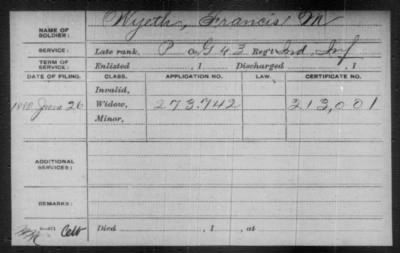 NAME OF SOLDIER: Wyeth, Francis M
SERVICE: Late rank, P Co. G 43 Reg't Ind. Inf
TERM OF SERVICE: Enlisted , 1 Discharged , 1
DATE OF FILING. CLASS. APPLICATION NO. LAW. CERTIFICATE NO.
Invalid,
1880 June 26 Widow, 273.742 213,001
Minor,
ADDITIONAL SERVICES:
REMARKS:
Died , 1 , at